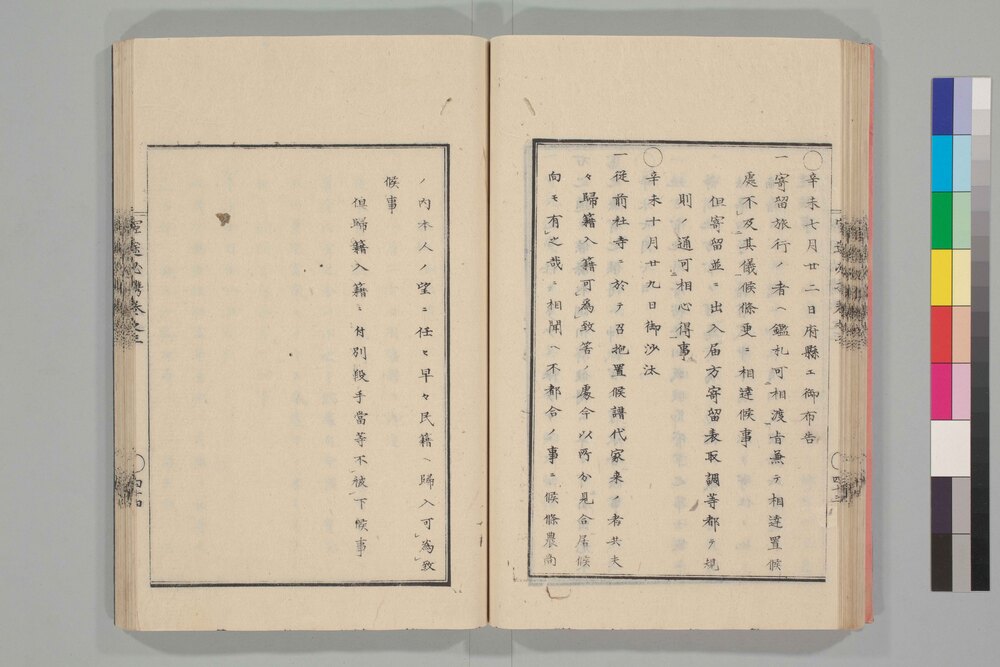 〇辛未七月廿二日府縣エ御布告
一寄留旅行ノ者ヘ鑑札可相渡旨兼テ相達置候
處不及其儀候條更ニ相達候事
但寄留並ニ出入届方寄留表取調等都テ規
則ノ通可相心得事
〇辛未十月廿九日御沙汰
一從前社寺ニ於テ召抱置候譜代家來ノ者共夫
々歸籍入籍可為致筈ノ處今以所分見合居候
向モ有之哉ニ相聞ヘ不都合ノ事ニ候條農商
ノ内本人ノ望ニ任セ早々民籍ヘ歸入可為致
候事
但歸籍入籍ニ付別段手當等不被下候事